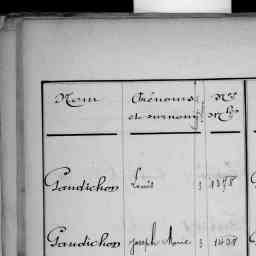 Nom Prénoms Nos
et surnoms Mles
Gaudichon Louis 3 1378
Gaudichon Joseph Marie 3 1428